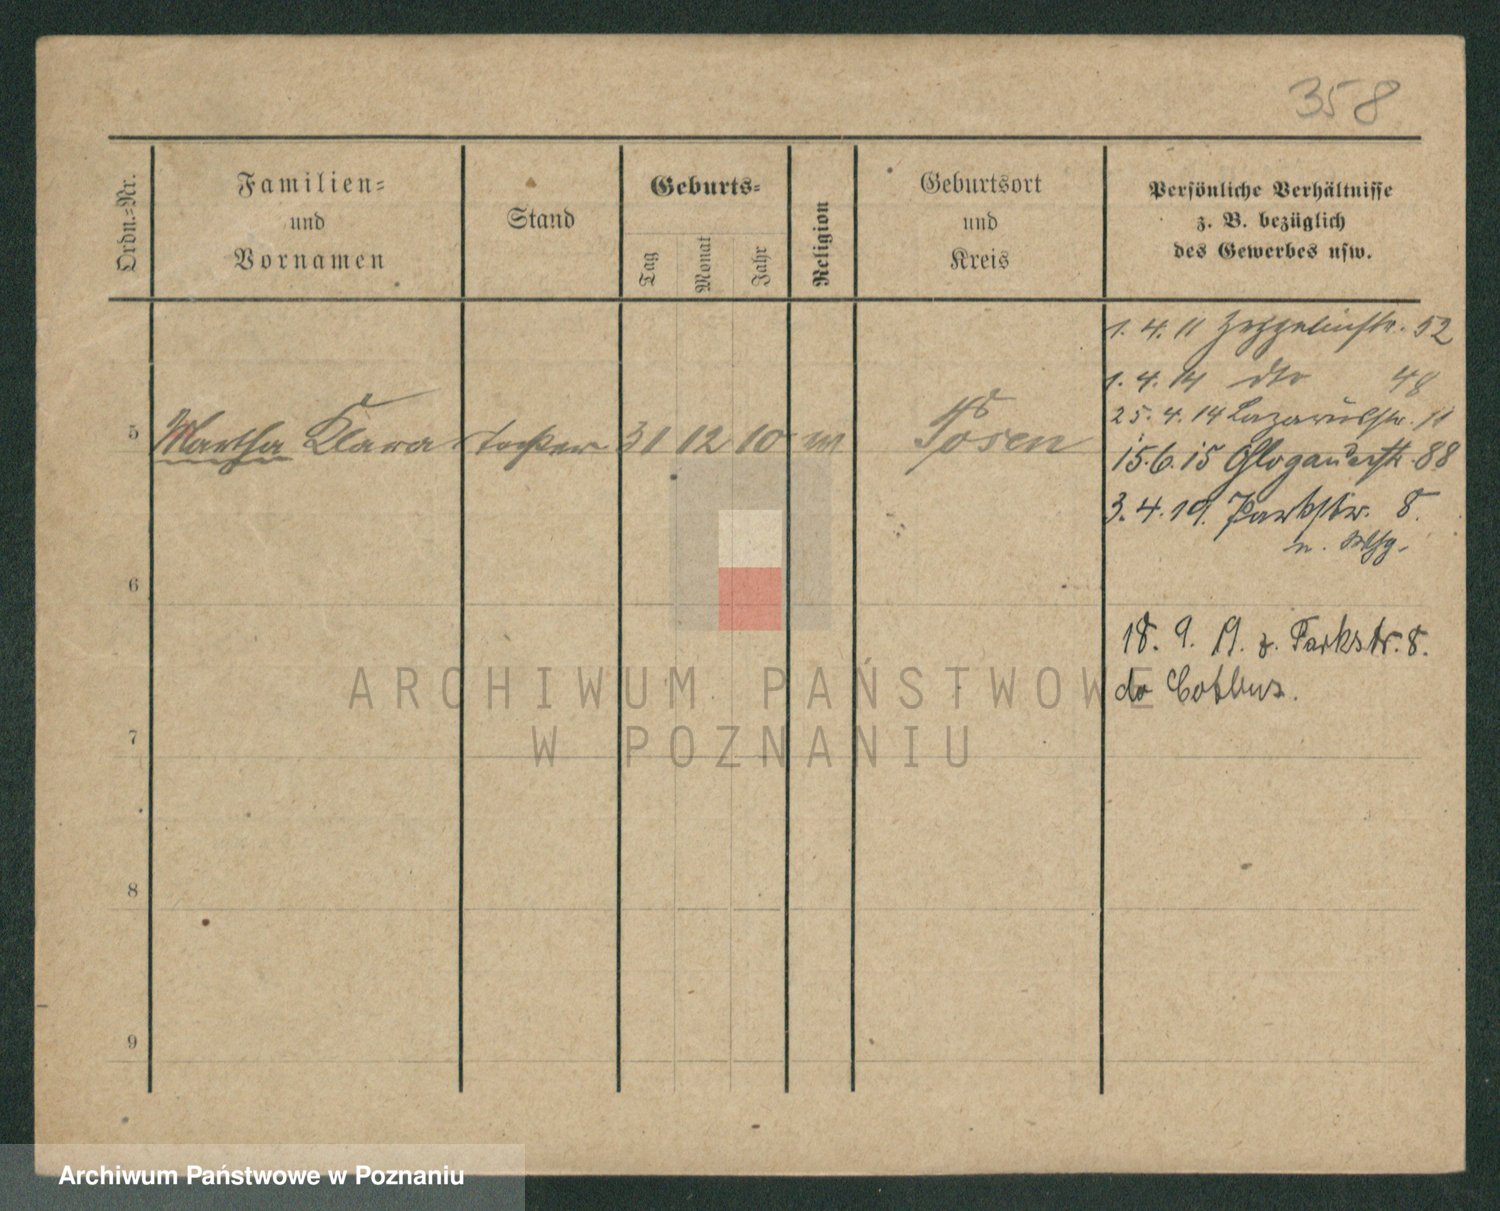 358
Ordn.-Nr.
Familien-
und
Vornamen
Stand
Geburts-
Tag
Monat
Jahr
Religion
Geburtsort
und
Kreis
Persönliche Verhältnisse
z. B. bezüglich
des Gewerbes usw.
1. 4. 11 Zeppelinstr. 52
1. 4. 14 dto 48
25. 4. 14 Lazarusstr. 11
5 Martha Klara Tochter 31 12 10 Posen
15. 6. 15 Glogauerstr. 88
3. 4. 19. Parkstr. 8.
6
18. 9. 19. z. Parkstr. 8.
do Cottbus.
ARCHIWUM PAŃSTWOWE
W POZNANIU
7
8
9
Archiwum Państwowe w Poznaniu